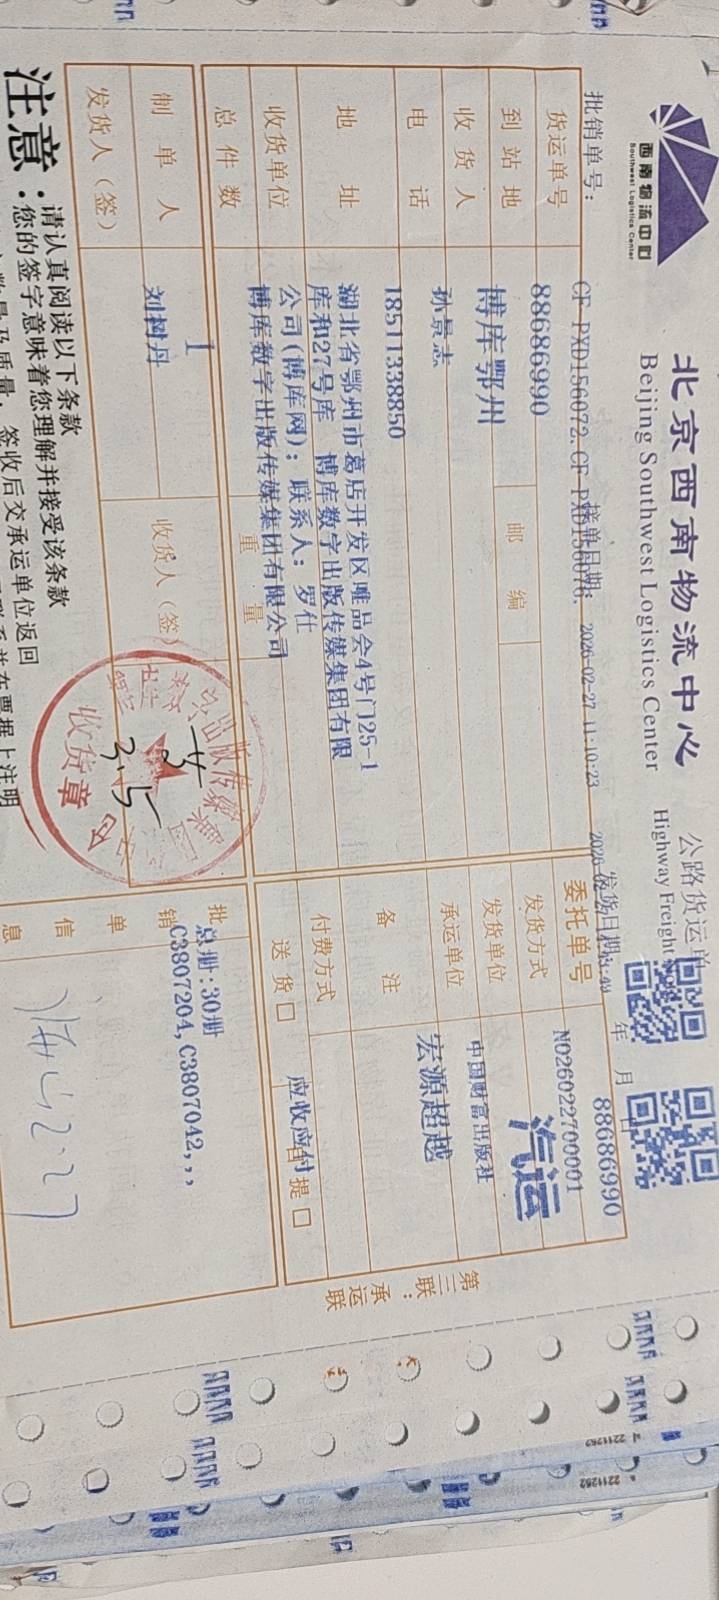 西南物流中心
Southwest Logistics Center
北京西南物流中心
Beijing Southwest Logistics Center
公路货运单
Highway Freight
批销单号：
CF-PXD156072,CF-PXD156078,
接单日期：
2026-02-27 11:10:23
发货日期：
年 月 日
货运单号 88686990
委托单号 88686990
N026022700001
到站地 博库鄂州
邮编
发货方式 汽运
收货人 孙景志
发货单位 中国财富出版社
电话 18511338850
承运单位 宏源超越
地址 湖北省鄂州市葛店开发区唯品会4号门25-1
库和27号库 博库数字出版传媒集团有限
公司(博库网)；联系人：罗仕
备注
收货单位 博库数字出版传媒集团有限公司
付费方式 应收应付
总件数 1
重量
送货□
自提□
制单人 刘树丹
收货人（签）
发货人（签）
批销单信息
总册:30册
C3807204,C3807042,,,
第三联：承运联
收货章
3.5
2.27
注意：
请认真阅读以下条款
您的签字意味着您理解并接受该条款
签收后交承运单位返回
并在票据上注明